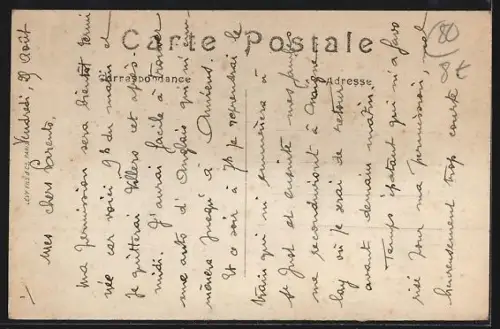 Carte Postale
Correspondance
Adresse
Vendredi, 29 Août
Mes chers Parents,
Ma permission sera bientôt termi
née car voici 9h du matin et
je quitterai Villers cet après-
midi. J'aurai facile à trouver
une auto d'Anglais qui m'em-
mènera jusqu'à Amiens.
Et ce soir à 7h je reprendrai le
train qui m'emmènera à
St Just et ensuite mes jambes
me reconduiront à
lay où je serai de retour
avant demain matin.
Temps épatant qui m'a favo
risé pour ma permission,
heureusement trop courte